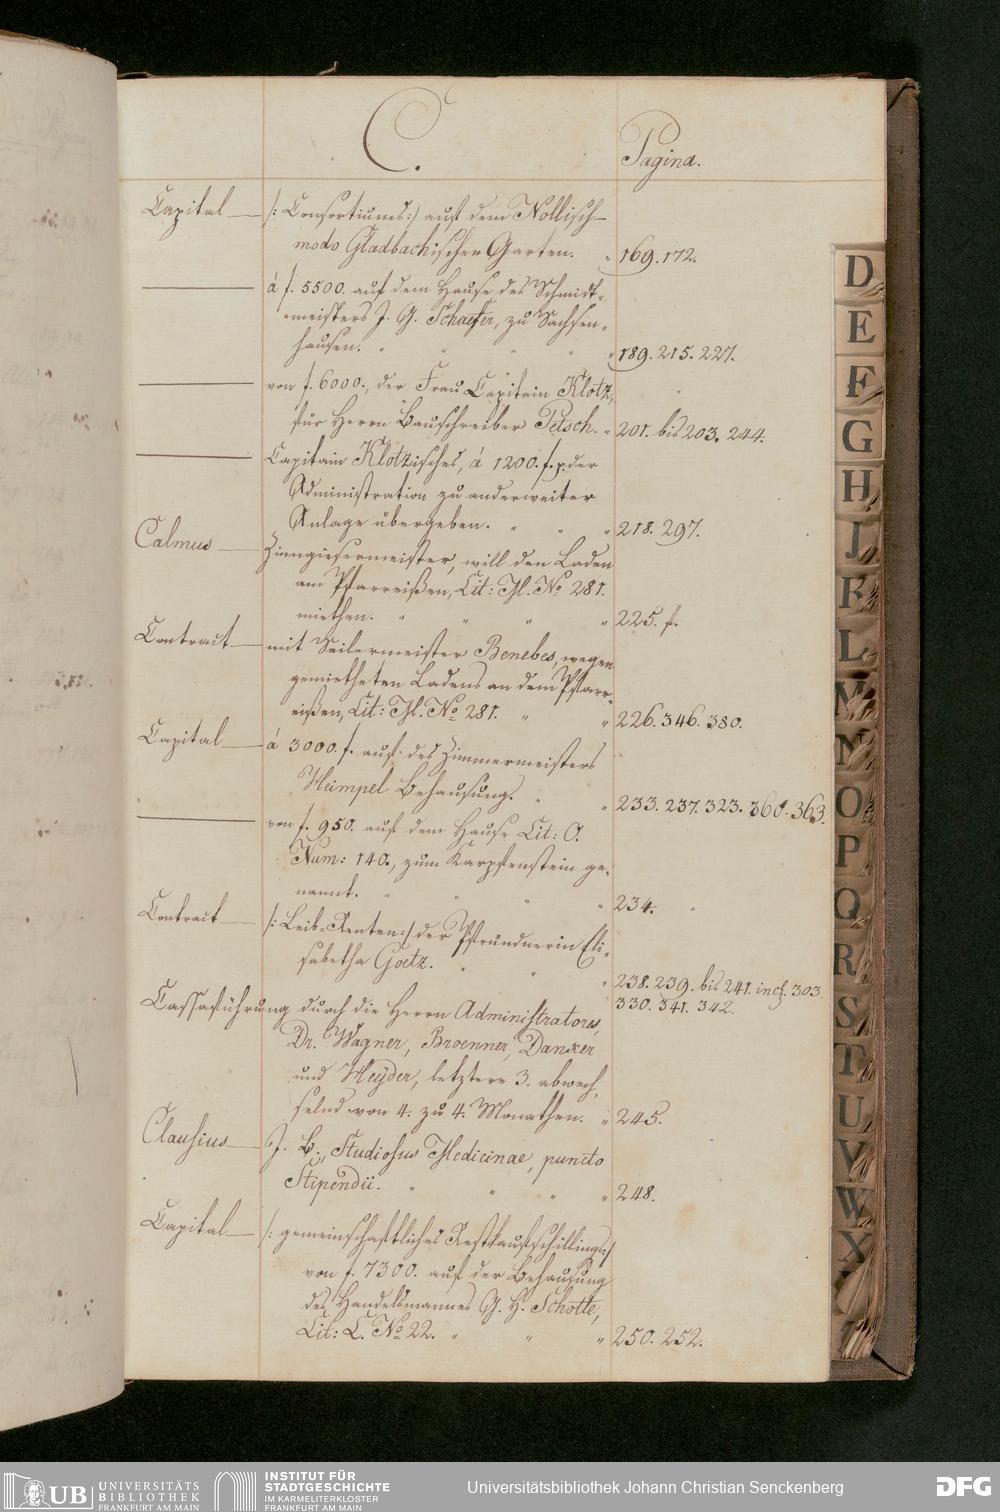 C.
Pagina.
Capital — /: Consortiums :/ auf dem Nollisch-
modo Gladbachischen Garten. " 169. 172.
— á f. 5500. auf dem Hause des Schmidt-
meisters J. G. Schaefer, zu Sachsen-
hausen. " " " " 189. 215. 227.
— von f. 6000., der Frau Capitain Klotz,
für Herrn Bauschreiber Petsch. " 201. bis 203. 244.
— Capitain Klotzisches, á 1200. f. p. der
Administration zu anderweiter
Anlage übergeben. " " " 218. 297.
Calmus — Zinngiesermeister, will den Laden
am Pfarreißen, Lit: M. No. 281.
miethen. " " " " 225. f.
Contract — mit Seilermeister Benebes, wegen
gemietheten Ladens an dem Pfarr-
eißen, Lit: M. No. 281. " " 226. 346. 380.
Capital — á 3000. f. auf des Zimmermeisters
Heimpel Behausung. " " 233. 237. 323. 360. 363.
— von f. 950. auf dem Hause Lit: O.
Num: 140., zum Karpfenstein ge-
nannt. " " " " 234.
Contract — /: Leib-Renten :/ der Pfründnerin Eli-
sabetha Goetz. " " " 238. 239. bis 241. incl. 303.
330. 341. 342.
Cassaführung durch die Herrn Administratores,
Dr. Wagner, Broenner, Dancker
und Heyder, letztere 3. abwech-
selnd von 4. zu 4. Monathen. " 245.
Clausius — J. B., Studiosus Medicinae, puncto
Stipendii. " " " " 248.
Capital — /: gemeinschaftliches Restkaufschillings :/
von f. 7300. auf der Behausung
des Handelsmannes G. H. Schotte,
Lit: L. No. 22. " " " 250. 252.
D
E
F
G
H
J
K
L
M
N
O
P
Q
R
S
T
U
V
W
X
UB UNIVERSITÄTS
BIBLIOTHEK
FRANKFURT AM MAIN
INSTITUT FÜR
STADTGESCHICHTE
IM KARMELITERKLOSTER
FRANKFURT AM MAIN
Universitätsbibliothek Johann Christian Senckenberg
DFG